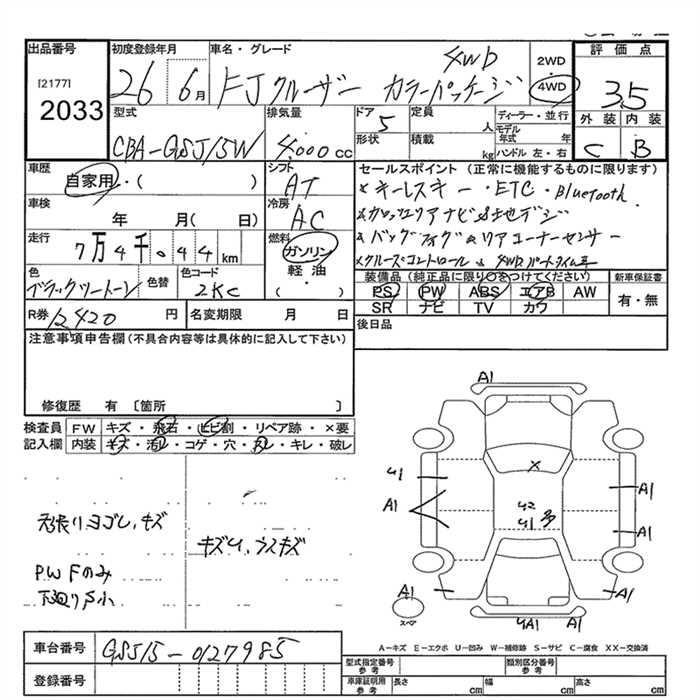 出品番号 初度登録年月 車名・グレード 2WD 評価点
[2177] 26 6月 FJクルーザー カラーパッケージ 4WD 4WD 3.5
2033 型式 排気量 ドア 定員 ディーラー・並行 外装 内装
CBA-GSJ15W 4,000cc 5 人 モデル年式 年 C B
形状 積載 kg ハンドル 左・右
車歴 シフト セールスポイント (正常に機能するものに限ります)
自家用・( ) AT *キーレスキー・ETC・Bluetooth
車検 冷房
年 月(日) AC
走行 燃料 *バックカメラ&リアコーナーセンサー
7万4千044km ガソリン *クルーズコントロール & 4WDパートタイム
色 色替 色コード 軽油 装備品 (純正品に限り○をつけてください) 新車保証書
ブラックツートーン 2KC ・( ) PS PW ABS エアB AW 有・無
SR ナビ TV カワ
R券 12420円 名変期限 月 日 後日品
注意事項申告欄(不具合内容等は具体的に記入して下さい)
修復歴 有 〔箇所 〕
検査員 FW キズ・飛石・ヒビ割・リペア跡・×要
記入欄 内装 キズ・汚レ・コゲ・穴・スレ・キレ・破レ
A1
X
U1 A1
A1 U2 U1 多
A1
天張リヨゴレ、キズ
キズU、ウスキズ
PW Fのみ
下廻りS小
A1 A1
スペア 4A1
A-キズ E-エクボ U-凹み W-補修跡 S-サビ C-腐食 XX-交換済
車台番号 GSJ15-0127985
型式指定番号 参考 類別区分番号 参考
登録番号 車庫証明用 参考 長さ cm 幅 cm 高さ cm